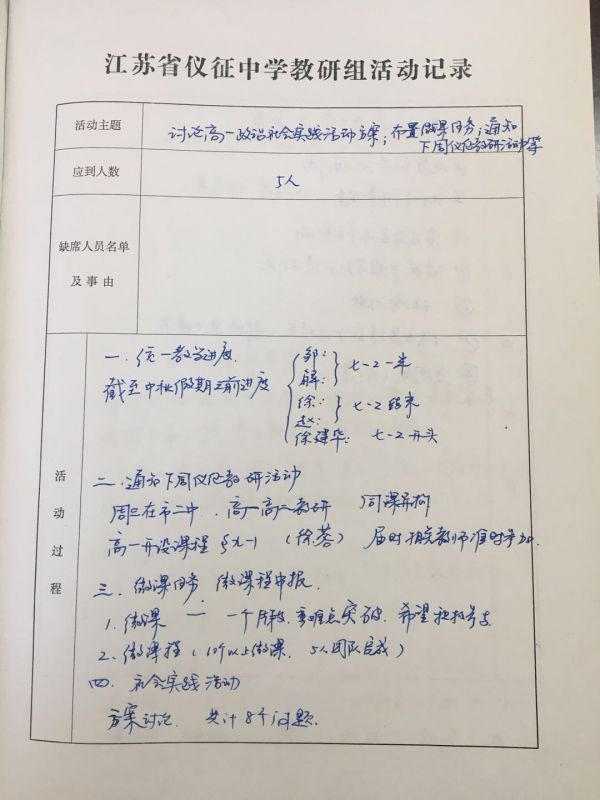 江苏省仪征中学教研组活动记录
活动主题
讨论高一政治社会实践活动方案；布置微课任务；通知
下周仪征教研活动等
应到人数
5人
缺席人员名单
及事由
活动过程
一. 统一教学进度
截至中秋假期之前进度
邹：
解：
七-2-一半
徐：
赵：
七-2结束
徐建华： 七-2开头
二. 通知下周仪征教研活动
周三在市二中. 高一高二教研 同课异构
高一开设课程 (徐蓉) 届时相关教师准时参加.
三. 微课任务 微课程申报.
1. 微课 — 一个片段. 重难点突破. 希望积极参与
2. 微课程 (10个以上微课. 5人团队完成)
四. 社会实践活动
方案讨论. 共计8个问题.